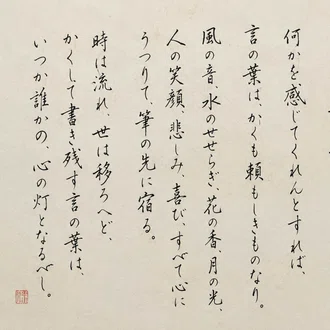 何かを感じてくれんとすれば、
言の葉は、かくも頼もしきものなり。
風の音、水のせせらぎ、花の香、月の光、
人の笑顔、悲しみ、喜び、すべて心に
うつりて、筆の先に宿る。
時は流れ、世は移ろへど、
かくして書き残す言の葉は、
いつか誰かの、心の灯となるべし。